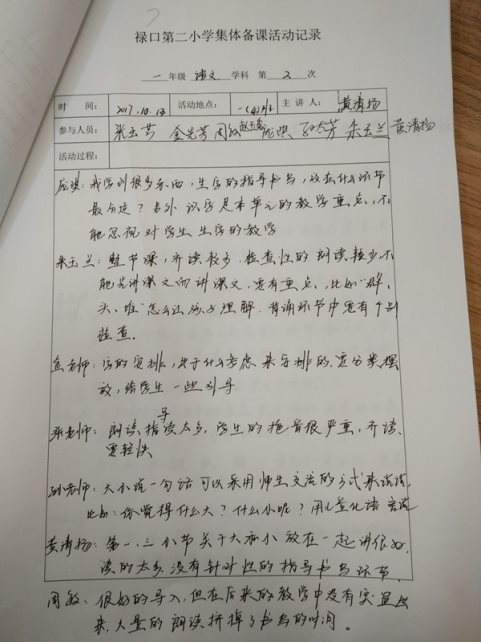 禄口第二小学集体备课活动记录
一 年级 语文 学科 第 2 次
时 间: 2017.10.13 活动地点: 一(4)班 主讲人: 黄清扬
参与人员: 朱玉兰 黄清扬
活动过程:
我学到很多东西,生字的指导书写,放在什么环节
最合适?另外 识字是本单元的教学重点,不
能忽视对学生 生字的教学
朱玉兰:整节课,齐读较多,检查性的朗读较少不
能光讲课文而讲课文,要有重点,比如"群、
头、唯"怎么让孩子理解,背诵环节中要有个别
检查。
金老师:字的安排,出于什么考虑 来安排的,要分类摆
放,给学生 一些引导
朱老师:朗读指导太多,学生的拖音很严重,齐读
要轻快
孙老师:大小说一句话 可以采用师生交流的方式来说说,
比如:你觉得什么大?什么小呢?用儿童化语言说
黄清扬:第一、三小节关于大和小 放在一起讲很好,
读的太多没有针对性的指导书写环节,
周敏、很好的导入,但在后来的教学中没有实显出
来,大量的朗读挤掉了书写的时间。